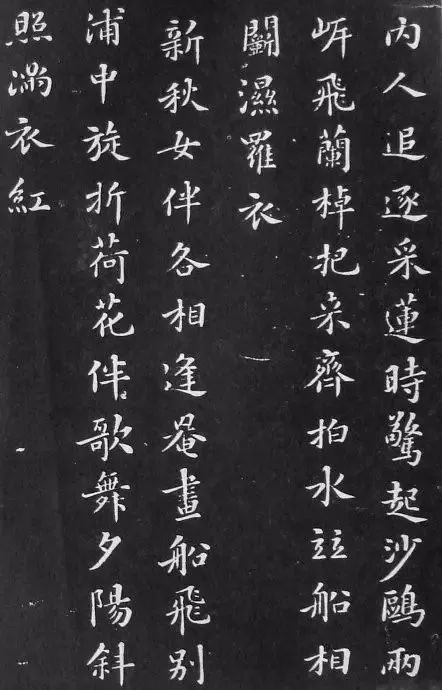 内人追逐采蓮時驚起沙鷗兩
岸飛蘭棹把来齊拍水竝船相
鬭濕羅衣
新秋女伴各相逢罨畫船飛别
浦中旋折荷花伴歌舞夕陽斜
照滿衣紅